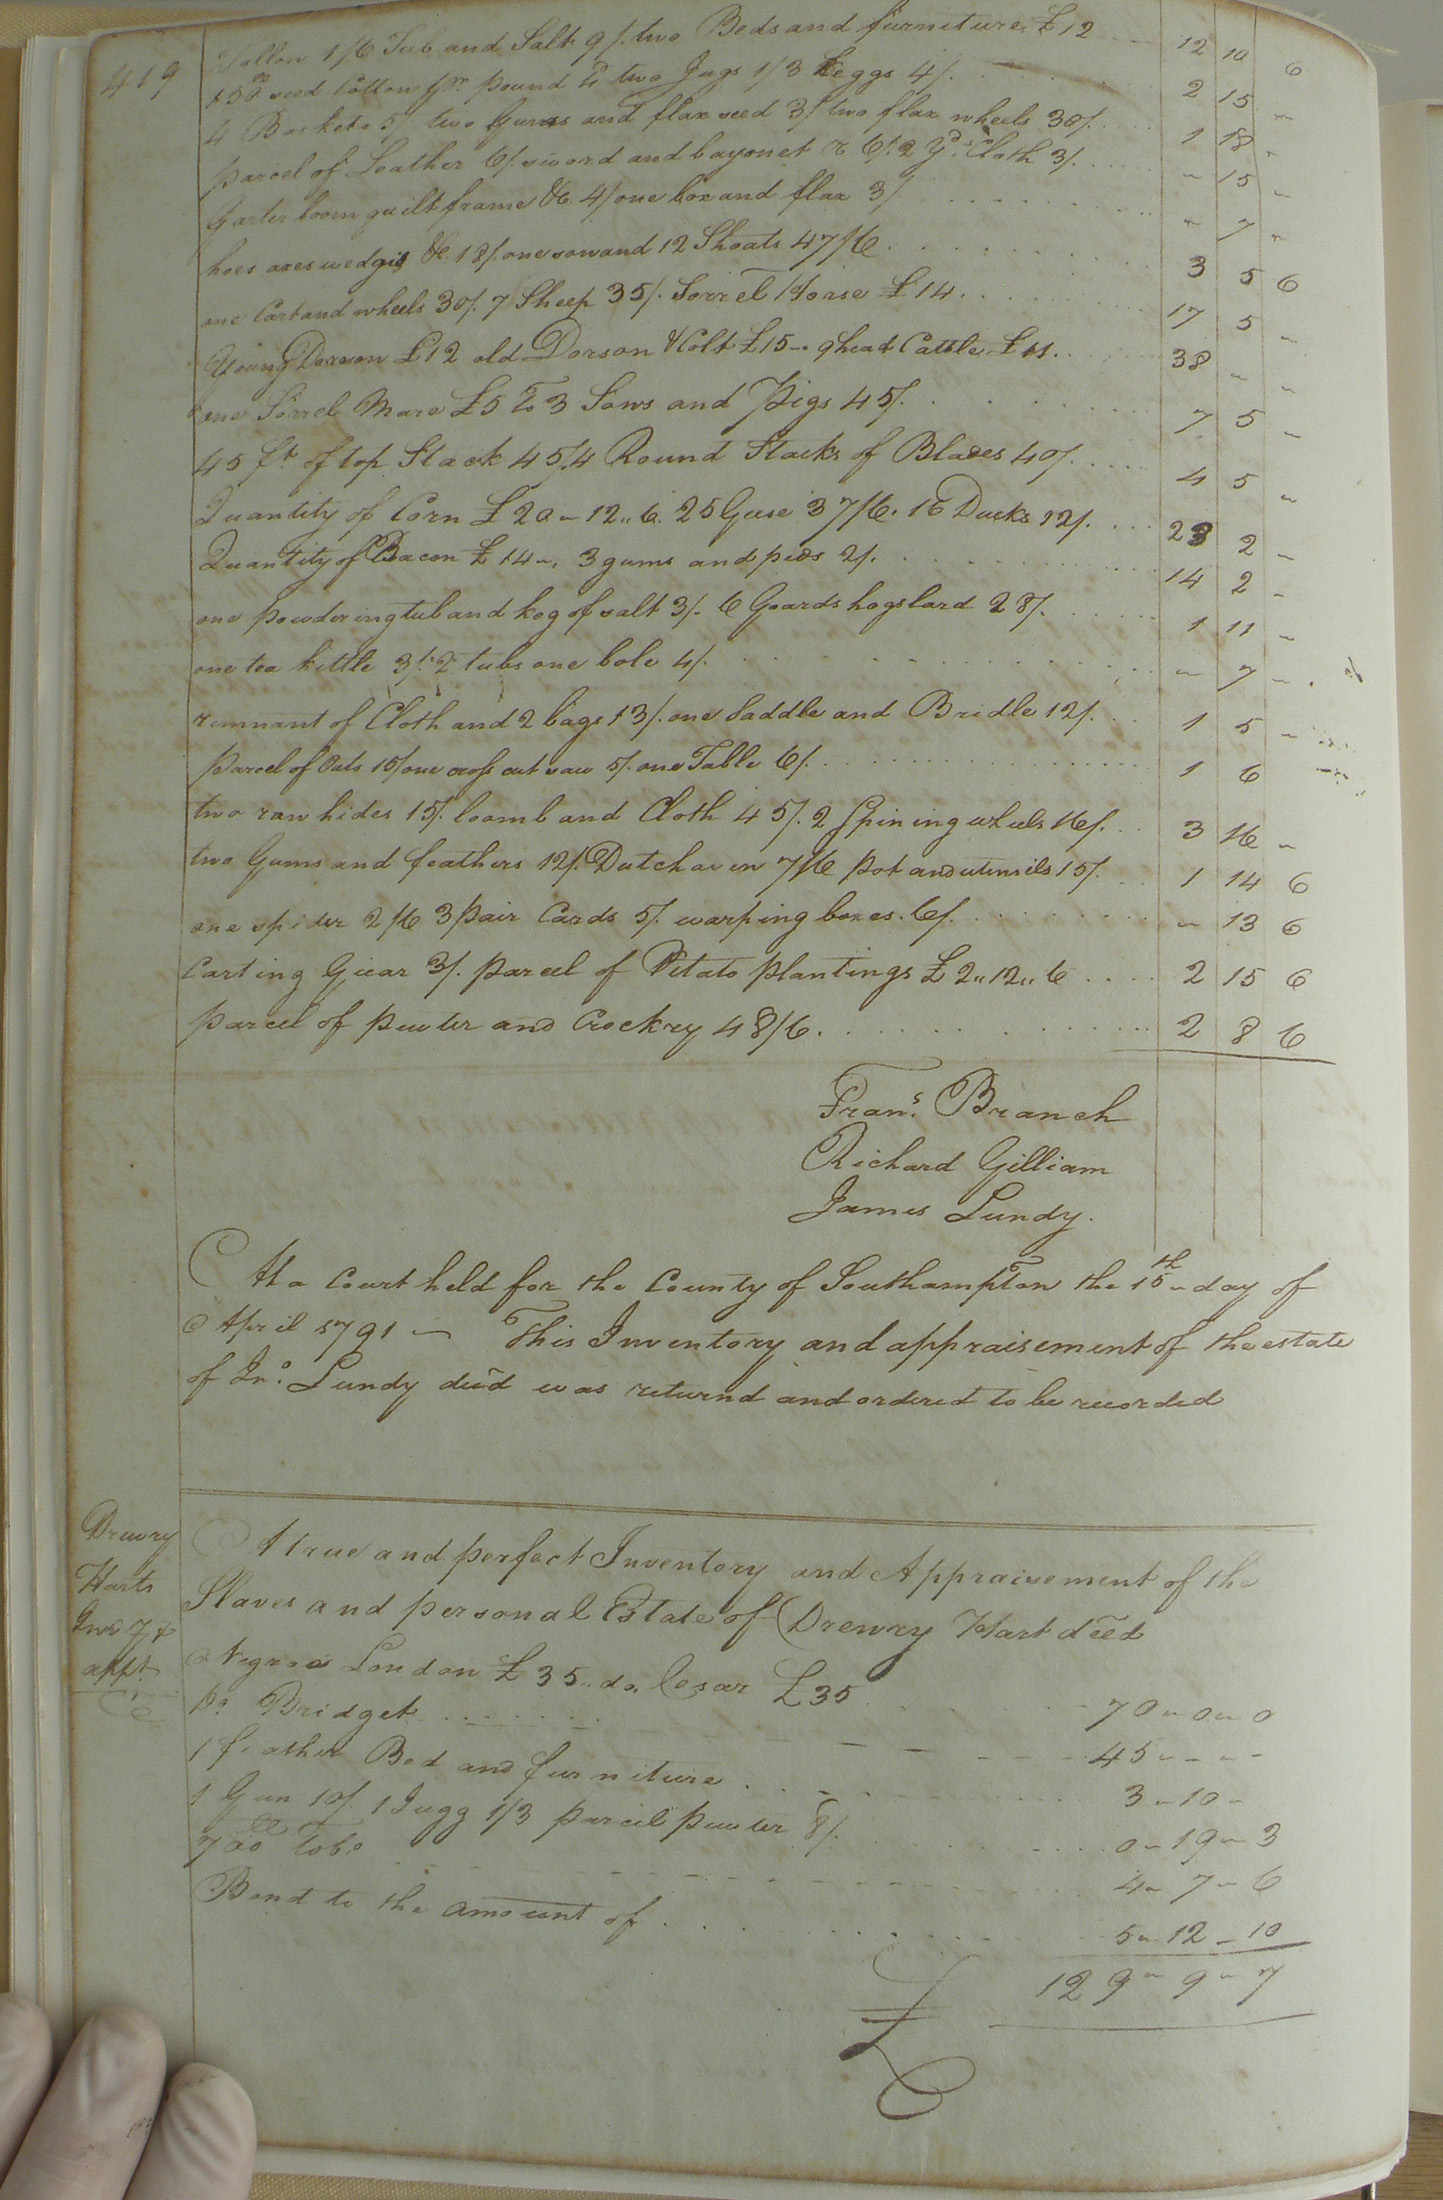 419
Tallow 1/6 Tub and Salt 9/. two Beds and furniture £12 12 10 6
150 seed Cotton pr pound 4d two Jugs 1/3 Leggs 4/. 2 15 "
4 Baskets 5/ two Gums and flax seed 3/ two flax wheels 30/. 1 18 "
parcel of Leather 6/. sword and bayonet & 6/. 2 yds Cloth 3/. " 15 "
Garter loom quilt frame &c 4/ one box and flax 3/ " 7 "
hoes axes wedgis &c 18/. one sow and 12 Shoats 47/6 3 5 6
one Cart and wheels 30/. 7 Sheep 35/. Sorrel Horse £14 17 5 "
Young Dorson £12 old Dorson & Colt £15 -. 9 head Cattle £11. 38 " "
one Sorrel Mare £5 To 3 Sows and Pigs 45/. 7 5 "
45 ft of top Stack 45/. 4 Round Stacks of Blades 40/. 4 5 "
Quantity of Corn £20 - 12 " 6. 25 Geese 37/6. 16 Ducks 12/. 23 2 "
Quantity of Bacon £14 -. 3 gums and peas 2/. 14 2 -
one powdering tub and keg of salt 3/. 6 Goards hogslard 28/. 1 11 "
one tea kittle 3/. 2 tubs one bole 4/. " 7 "
remnant of Cloth and 2 bags 13/. one Saddle and Bridle 12/. 1 5 "
parcel of Oats 15/ one cross cut saw 5/. one Table 6/. 1 6
two raw hides 15/. loomb and Cloth 45/. 2 Spining wheels 16/. 3 16 "
two Gums and feathers 12/. Dutch oven 7/6 pot and utensils 15/. 1 14 6
one spider 2/6 3 pair Cards 5/. warping boxes. 6/. " 13 6
Carting Giear 3/. parcel of Potato plantings £2 " 12 " 6 2 15 6
parcel of pewter and Crockry 48/6. 2 8 6
Frans. Branch
Richard Gilliam
James Lundy.
At a Court held for the County of Southampton the 15th day of
April 1791 - This Inventory and appraisement of the estate
of Jno. Lundy decd was returnd and ordered to be recorded
Drewry
Harts
Invy &
appt
A true and perfect Inventory and Appraisement of the
Slaves and personal Estate of Drewry Hart decd
Negroe London £35 " do. Cesar £35 70 - 0 - 0
Do. Bridget 45 - - - -
1 feather Bed and furniture 3 - 10 -
1 Gun 10/. 1 Jugg 1/3 parcel pewter 8/. 0 - 19 - 3
700 Tobo 4 - 7 - 6
Bond to the amount of 5 - 12 - 10
£ 129 - 9 - 7